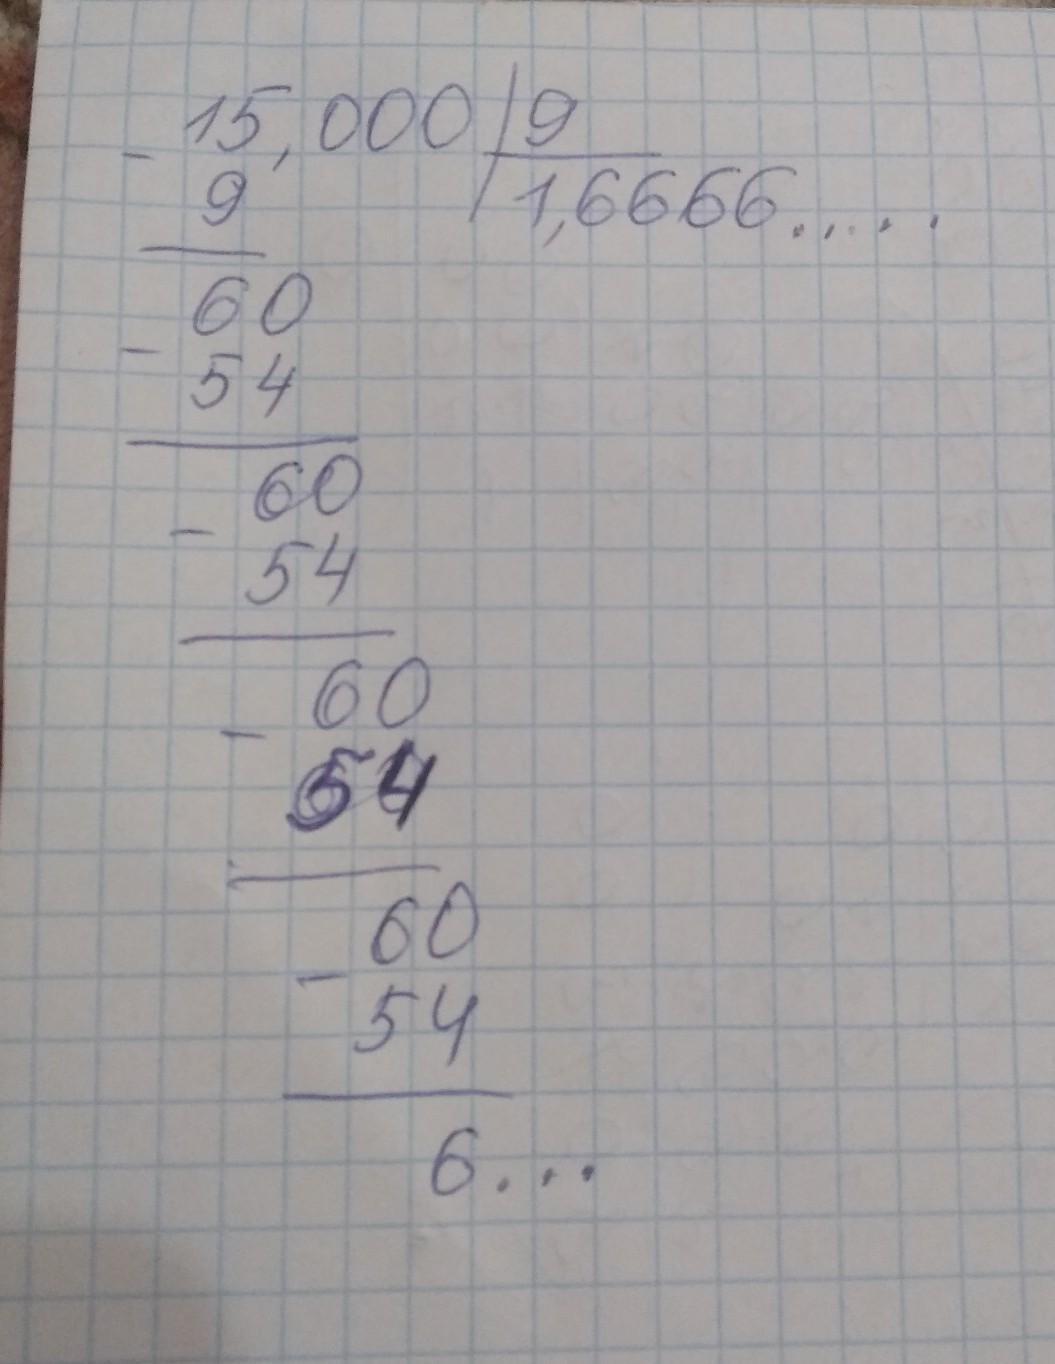 15,000 | 9
- 9 | 1,6666.....
60
- 54
60
- 54
60
- 54
60
- 54
6...